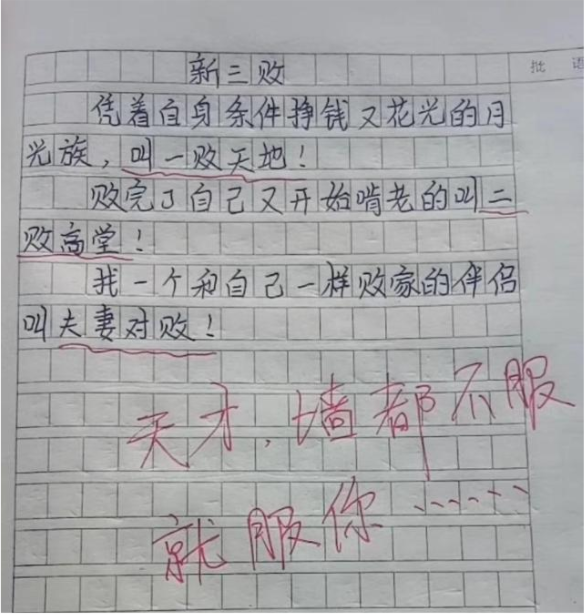 批 语
新三败
凭着自身条件挣钱又花光的月
光族，叫一败天地！
败完了自己又开始啃老的叫二
败高堂！
找一个和自己一样败家的伴侣
叫夫妻对败！
天才，墙都不服
就服你……